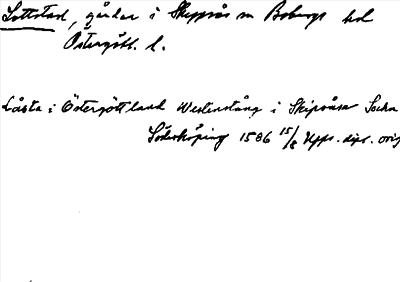 Lottstad, gårdar i Skeppsås sn Bobergs hd
Östergötl. l.
Låsta i Östergöttland Westenstång i Skipsåsa Sochn
Söderköping 1586 15/8 Upps. dipl. orig